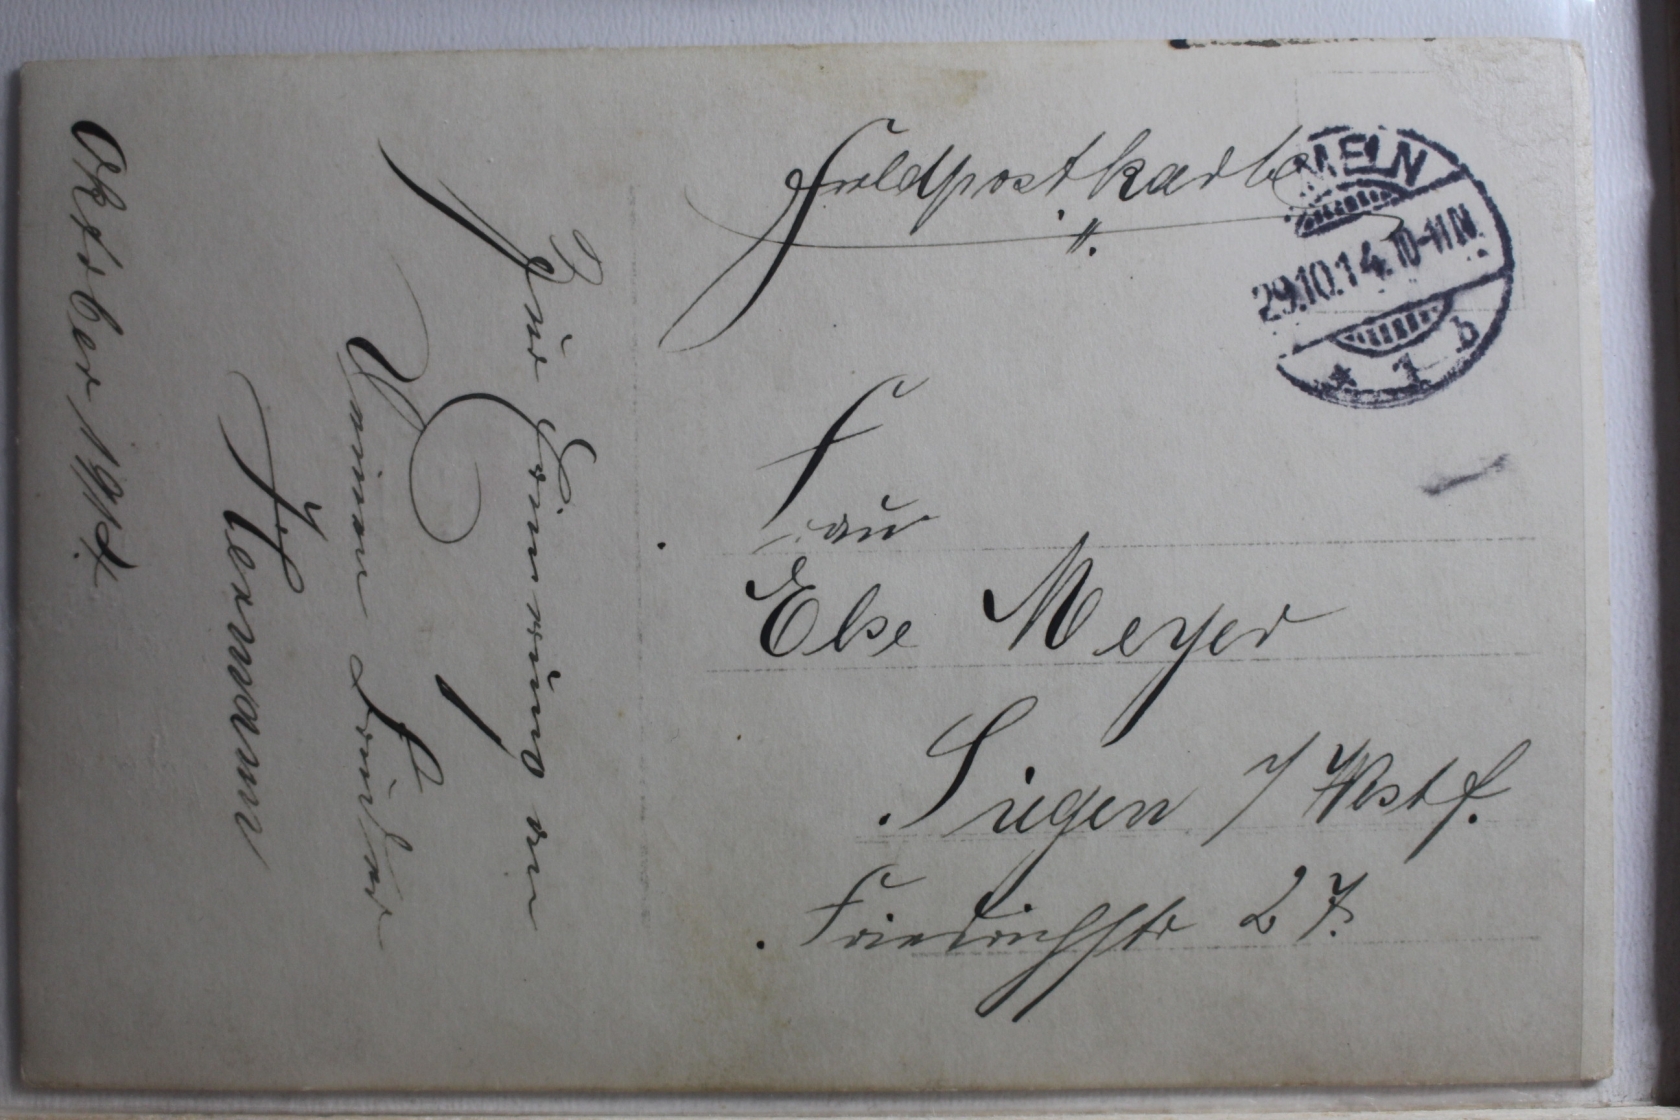 Feldpostkarte
MELN
29.10.14. 10-11N
* 1 b
Frau
Else Meyer
Siegen / Westf.
Friedrichstr 27.
Zur Erinnerung an
Deinen Bruder
Hermann
Oktober 1914.